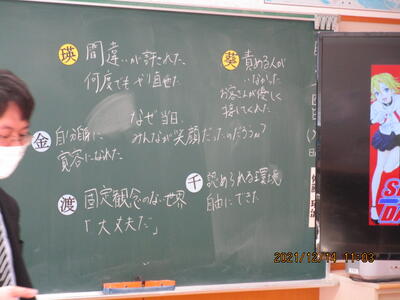 瑛
間違いが許された
何度でもやり直せた
葵
責める人が
いなかった
お客さんが優しく
接してくれた
なぜ当日、
みんなが笑顔だったのだろうか?
金
自分自身に
寛容になれた
渡
固定観念のない世界
「大丈夫だ」
千
認められる環境
自由にできた
2021/12/14 11:03